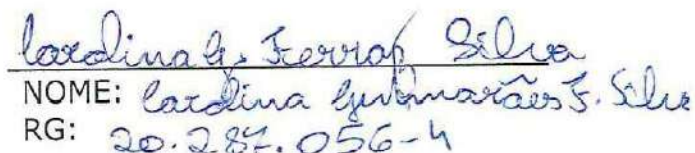 Carolina G. Ferraz Silva
NOME: Carolina Guimarães F. Silva
RG: 20.287.056-4